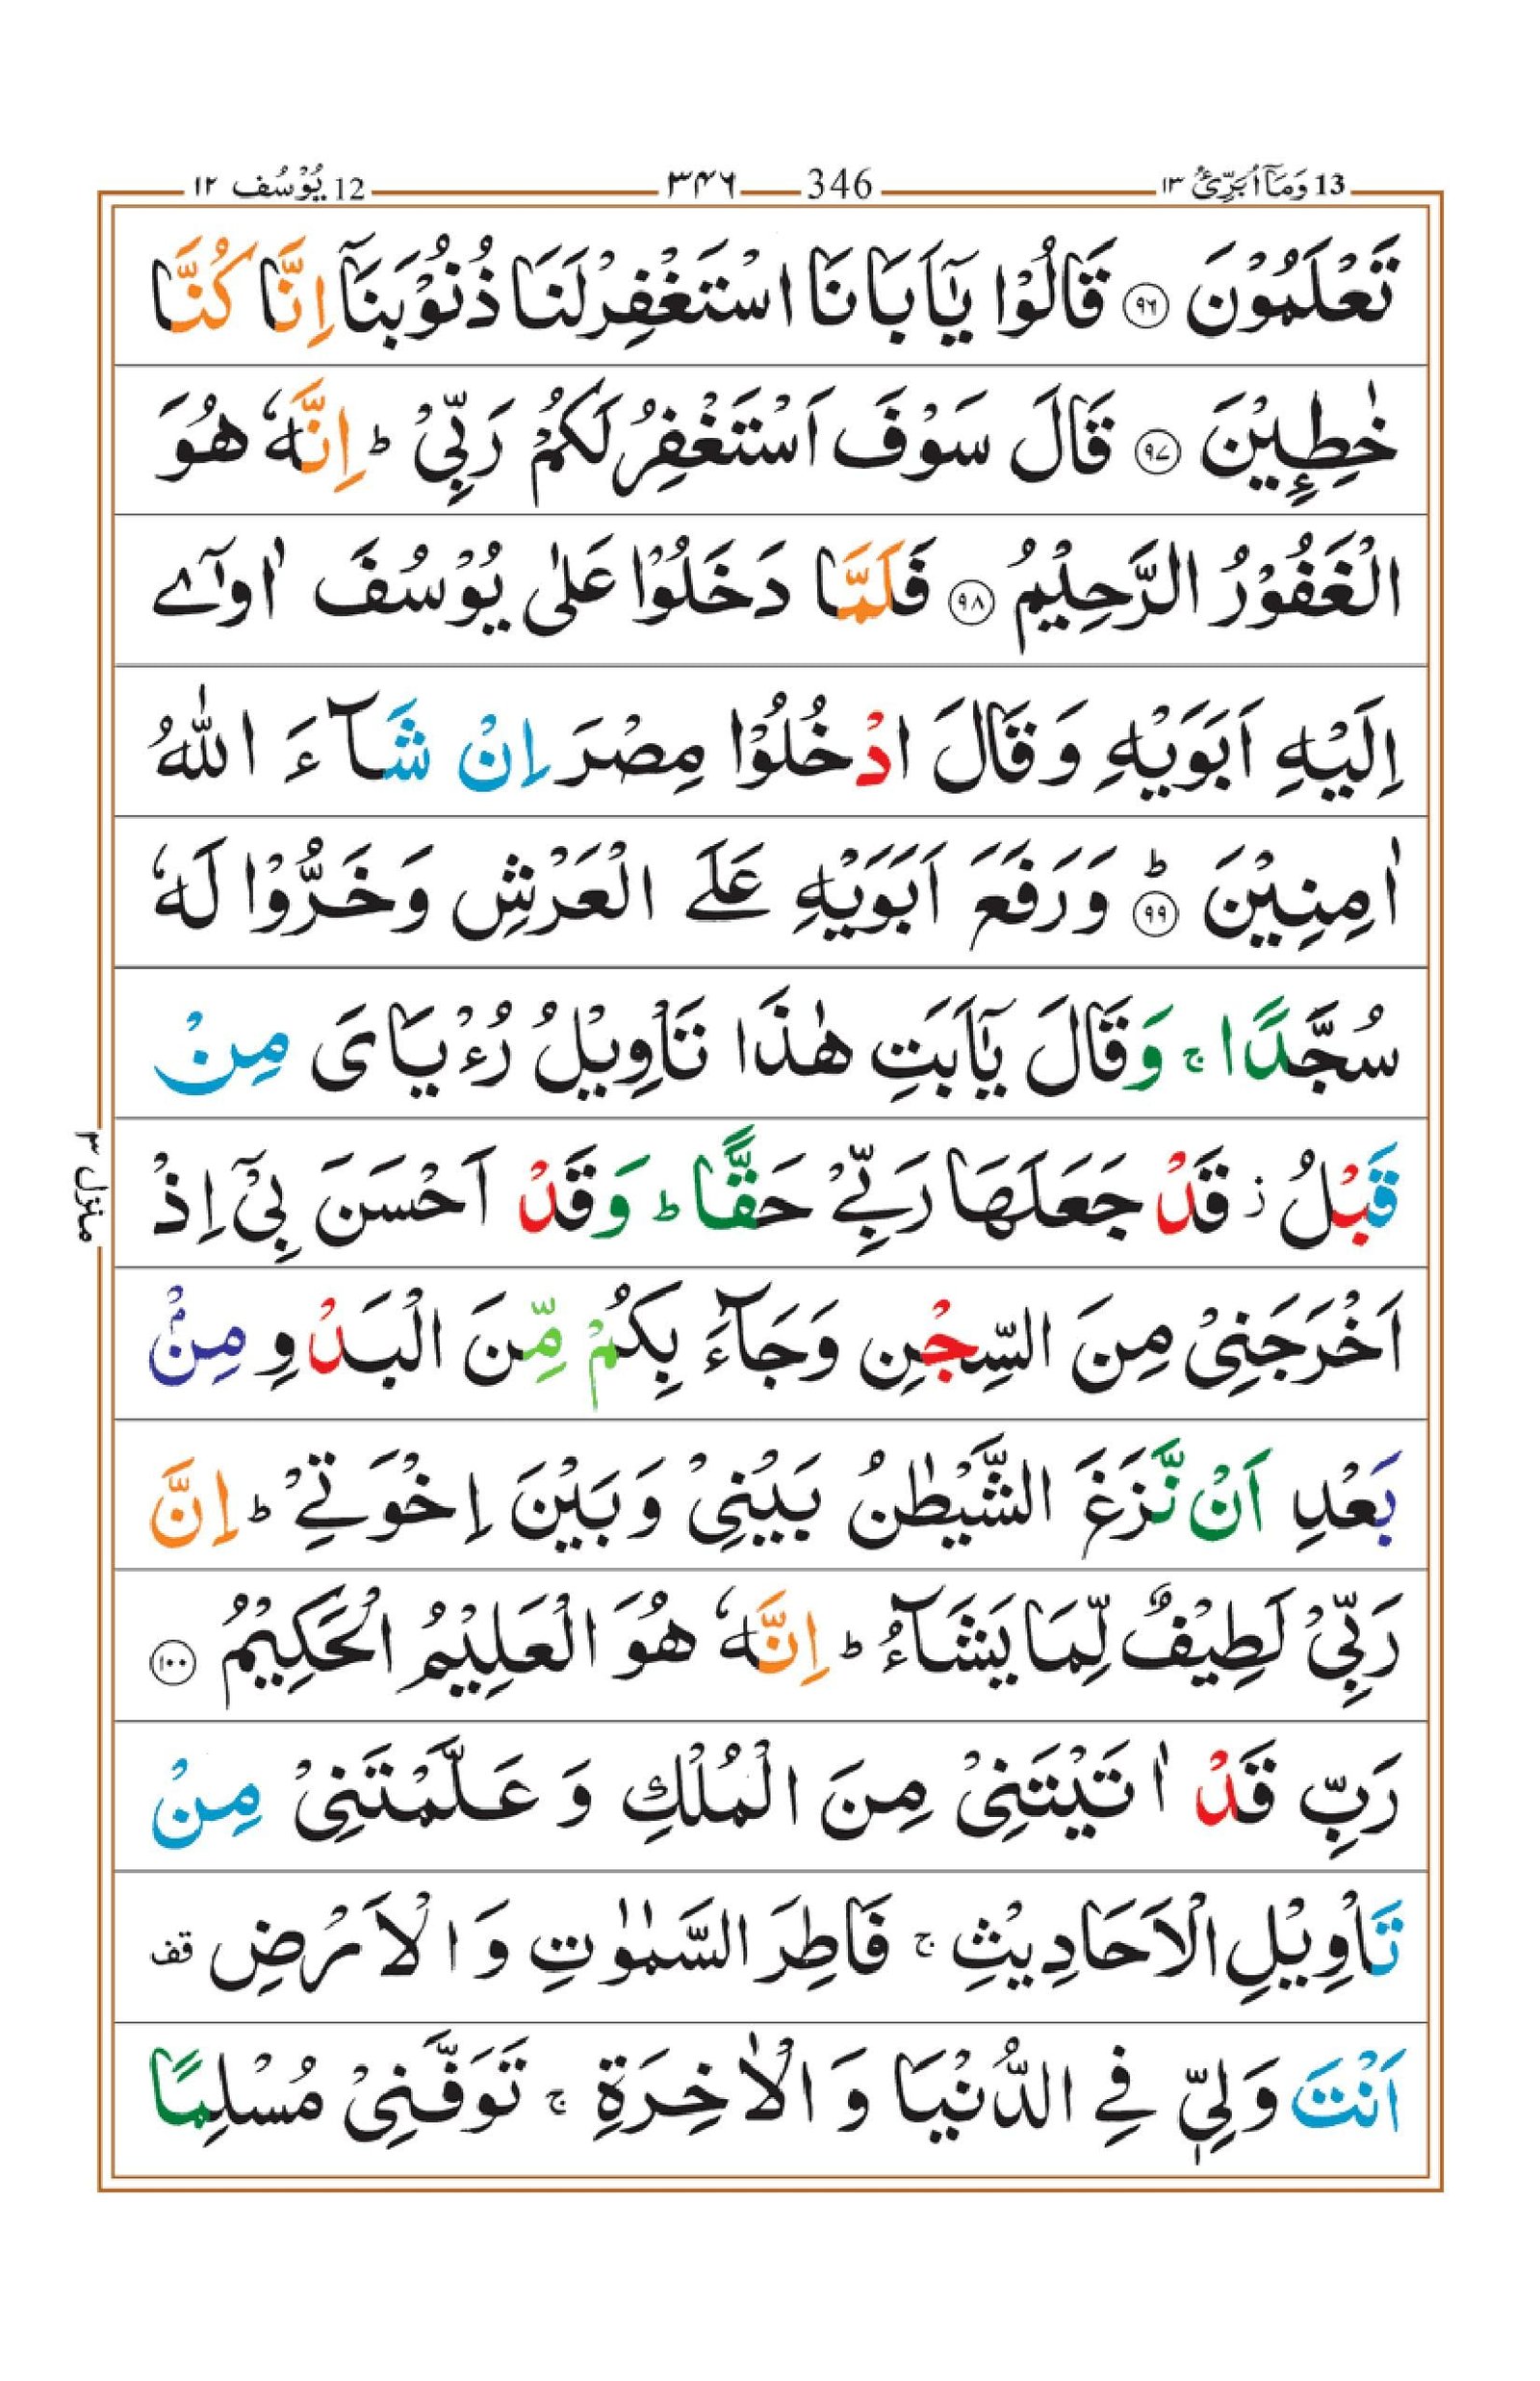 13 وَمَاۤ اُبَرِّئُ ١٣ 346 ٣٤٦ 12 يُوْسُف ١٢
تَعْلَمُوْنَ ﴿٩٦﴾ قَالُوْا يٰۤاَبَانَا اسْتَغْفِرْ لَنَا ذُنُوْبَنَاۤ اِنَّا كُنَّا
خٰطِـِٕيْنَ ﴿٩٧﴾ قَالَ سَوْفَ اَسْتَغْفِرُ لَكُمْ رَبِّيْ ؕ اِنَّهٗ هُوَ
الْغَفُوْرُ الرَّحِيْمُ ﴿٩٨﴾ فَلَمَّا دَخَلُوْا عَلٰى يُوْسُفَ اٰوٰۤى
اِلَيْهِ اَبَوَيْهِ وَقَالَ ادْخُلُوْا مِصْرَ اِنْ شَآءَ اللّٰهُ
اٰمِنِيْنَ ؕ﴿٩٩﴾ وَرَفَعَ اَبَوَيْهِ عَلَى الْعَرْشِ وَخَرُّوْا لَهٗ
سُجَّدًا ۚ وَقَالَ يٰۤاَبَتِ هٰذَا تَاْوِيْلُ رُءْيَايَ مِنْ
قَبْلُ ؗ قَدْ جَعَلَهَا رَبِّيْ حَقًّا ؕ وَقَدْ اَحْسَنَ بِيْۤ اِذْ
اَخْرَجَنِيْ مِنَ السِّجْنِ وَجَآءَ بِكُمْ مِّنَ الْبَدْوِ مِنْۢ
بَعْدِ اَنْ نَّزَغَ الشَّيْطٰنُ بَيْنِيْ وَبَيْنَ اِخْوَتِيْ ؕ اِنَّ
رَبِّيْ لَطِيْفٌ لِّمَا يَشَآءُ ؕ اِنَّهٗ هُوَ الْعَلِيْمُ الْحَكِيْمُ ﴿١٠٠﴾
رَبِّ قَدْ اٰتَيْتَنِيْ مِنَ الْمُلْكِ وَعَلَّمْتَنِيْ مِنْ
تَاْوِيْلِ الْاَحَادِيْثِ ۚ فَاطِرَ السَّمٰوٰتِ وَالْاَرْضِ قف
اَنْتَ وَلِيّٖ فِي الدُّنْيَا وَالْاٰخِرَةِ ۚ تَوَفَّنِيْ مُسْلِمًا
منزل ٣